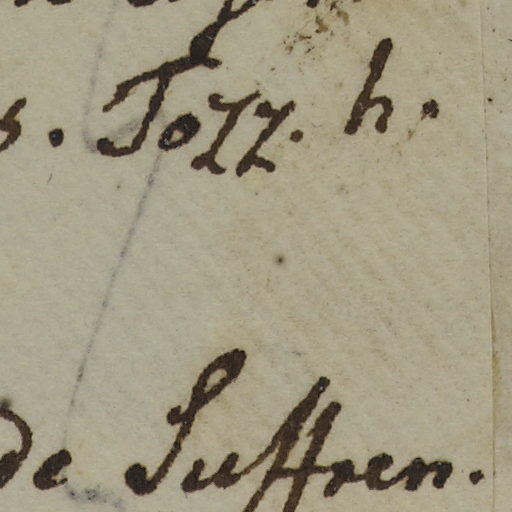 s. Tozz. h.
de Suffren.